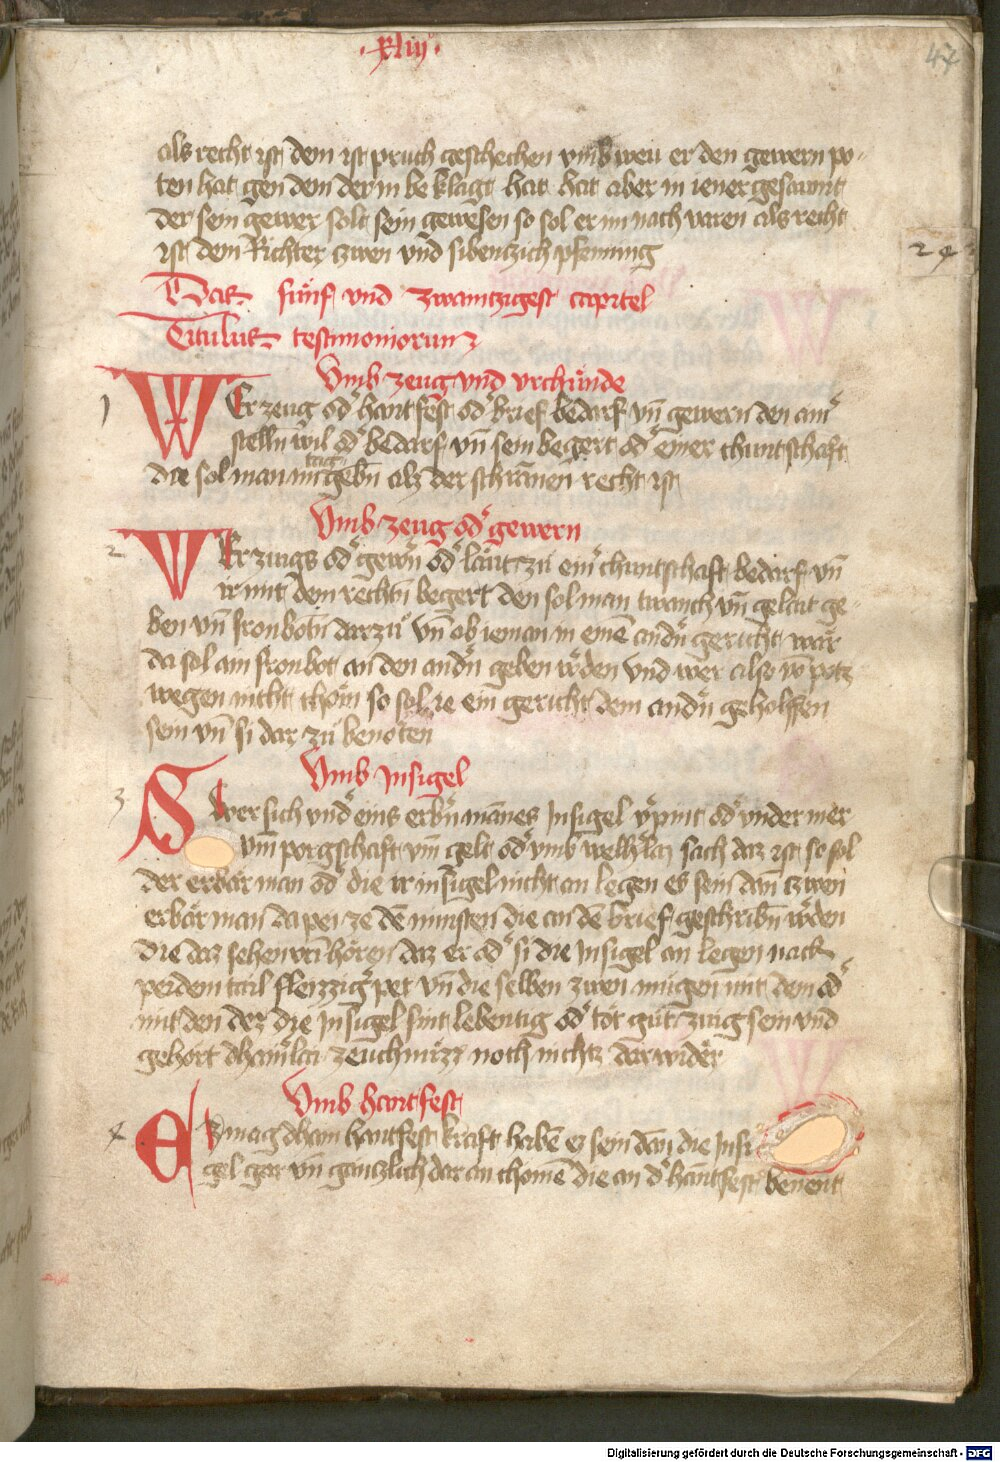 ·xliij·
47
als recht ist dem ist pruch geschechen vmb weu er den gewern po-
ten hat gen dem der in be klagt hat hat aber in iener gesaumt
der sein gewer solt sein gewesen so sol er im nach varen als recht
ist dem Richter zwen vnd sibentzich pfenning
Daz fünf vnd zwaintzigest capitel
Titulus testimoniorum
Vmb zeug vnd vrchünde
1
WEr zeug od hantfest od brief bedarf vn̄ gewern den ain
stelln̄ wil od bedarf vn̄ sein begert od einer chuntschaft
die sol man im tag gebn̄ alz der schrannen recht ist
Vmb zeug od gewern
2
WEr zeugs od gewern od läut zu eim chuntschaft bedarf vn̄
ir mit dem rechtn̄ begert den sol man twanch vn̄ gelait ge-
ben vn̄ fronbotn̄ darzu vn̄ ob ieman in einē andn̄ gericht wär
da sol ain fronbot an den andn̄ geben wden vnd wer also
wegen nicht chöm so sol ie ein gericht dem andn̄ geholffen
sein vn̄ si dar zu benöten
Vmb Insigel
3
Swer sich vnd eins erbn̄ mannes Insigel vpint od vnder mer
vm porgschaft vm gelt od vmb welhlay sach daz ist so sol
der erbär man od die ir insigel nicht an legen es sein dan zwen
erbär man da pei ze dē minsten die an dē brief geschribn̄ wden
die daz sehen vn̄ hören daz er od si die Insigel an legen nach
peidem tail fleizziger pet vn̄ die selben zwen mügen mit dem od
mit den dez die Insigel sint lebentig od tot gut zeug sein vnd
gehört dhainlai zeuchnüzz noch nichtz darwider
Vmb hantfest
4
Ez mag dhain hantfest kraft haben ez sein dan die Insi
gel gar vn̄ gänczlich dar an chomē die an d hantfest benent
Digitalisierung gefördert durch die Deutsche Forschungsgemeinschaft - DFG